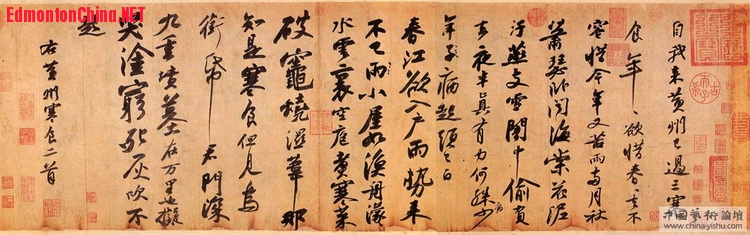 EdmontonChina.NET
自我來黃州已過三寒
食年〻欲惜春〻去不
容惜今年又苦雨兩月秋
蕭瑟臥聞海棠花泥
汙燕支雪闇中偷負
去夜半真有力何殊病少
年子病起頭已白
春江欲入戶雨勢來
不已雨小屋如漁舟濛〻
水雲裏空庖煮寒菜
破竈燒濕葦那
知是寒食但見烏
銜帋君門深
九重墳墓在万里也擬
哭塗窮死灰吹不
起
右黃州寒食二首
中國藝術論壇
www.china-yishu.com